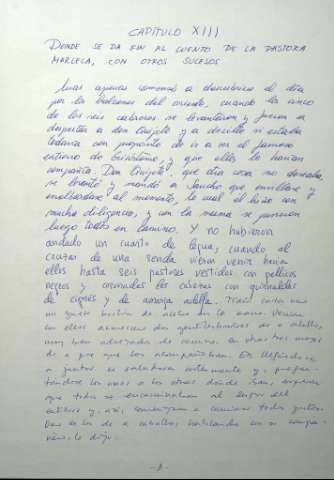 CAPÍTULO XIII
DONDE SE DA FIN AL CUENTO DE LA PASTORA
MARCELA, CON OTROS SUCESOS
Mas apenas comenzó a descubrirse el día
por los balcones del oriente, cuando los cinco
de los seis cabreros se levantaron y fueron a
despertar a don Quijote y a decille si estaba
todavía con propósito de ir a ver el famoso
entierro de Grisóstomo, y que ellos le harían
compañía. Don Quijote, que otra cosa no deseaba,
se levantó y mandó a Sancho que ensillase y
enalbardase al momento, lo cual él hizo con
mucha diligencia, y con la misma se pusieron
luego todos en camino. Y no hubieron
andado un cuarto de legua, cuando al
cruzar de una senda vieron venir hacia
ellos hasta seis pastores vestidos con pellicos
negros y coronadas las cabezas con guirnaldas
de ciprés y de amarga adelfa. Traía cada uno
un grueso bastón de acebo en la mano. Venían
con ellos dos gentileshombres de a caballo,
muy bien aderezados de camino, con otros tres mozos
de a pie que los acompañaban. En llegándose
a juntar se saludaron cortésmente y, pregun-
tándose los unos a los otros dónde iban, supieron
que todos se encaminaban al lugar del
entierro y, así, comenzaron a caminar todos juntos.
Uno de los de a caballo, hablando con su compa-
ñero, le dijo: